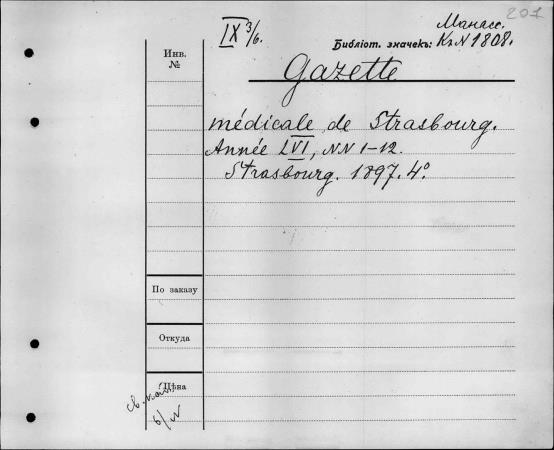 201
IX 3/6.
Манасс.
Библіот. значекъ: К2N 1808.
Инв.
№
Gazette
médicale de Strasbourg.
Année LVI, NN 1-12.
Strasbourg. 1897. 4º
По заказу
Откуда
Цѣна
св.